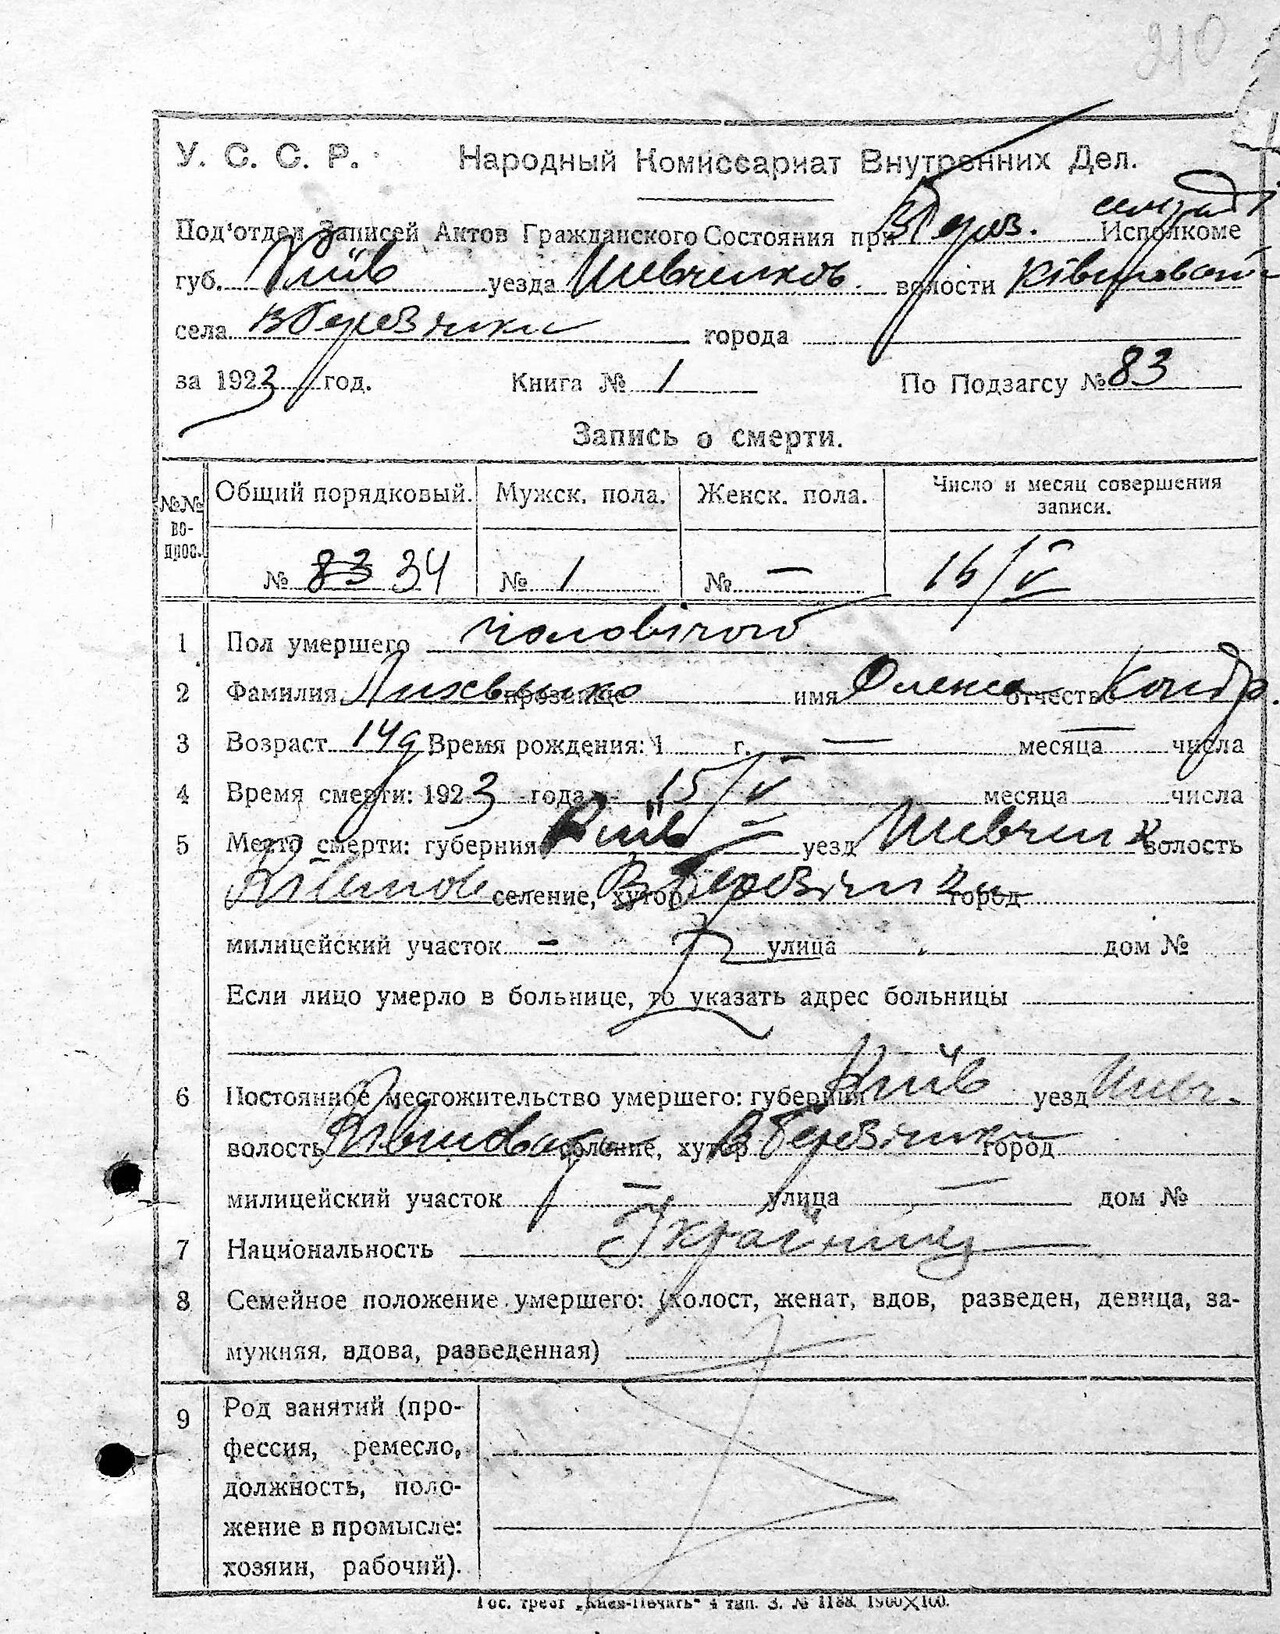 210
У. С. С. Р. Народный Комиссариат Внутренних Дел.
Под'отдел Записей Актов Гражданского Состояния при В Берез. Исполкоме
губ. Київ уезда Шевченков. волости
села В Березянки города
за 1923 год. Книга № 1 По Подзагсу № 83
Запись о смерти.
№№ вопрос. Общий порядковый. Мужск. пола. Женск. пола. Число и месяц совершения записи.
№ 83 34 № 1 № — 16/V
1 Пол умершего чоловічого
2 Фамилия, прозвище имя Олекса отчество Кондр.
3 Возраст 14 д Время рождения: 1 г. — месяца — числа
4 Время смерти: 1923 года 15/V месяца числа
5 Место смерти: губерния Київ уезд Шевченк волость
селение, хутор город
милицейский участок — улица дом №
Если лицо умерло в больнице, то указать адрес больницы
6 Постоянное местожительство умершего: губерния Київ уезд Шевч.
волость селение, хутор город
милицейский участок — улица — дом №
7 Национальность Українец
8 Семейное положение умершего: (холост, женат, вдов, разведен, девица, за-
мужняя, вдова, разведенная)
9 Род занятий (про-
фессия, ремесло,
должность, поло-
жение в промысле:
хозяин, рабочий).
Гос. трест „Киев-Печать" 4 тип. З. № 1188. 1900×100.